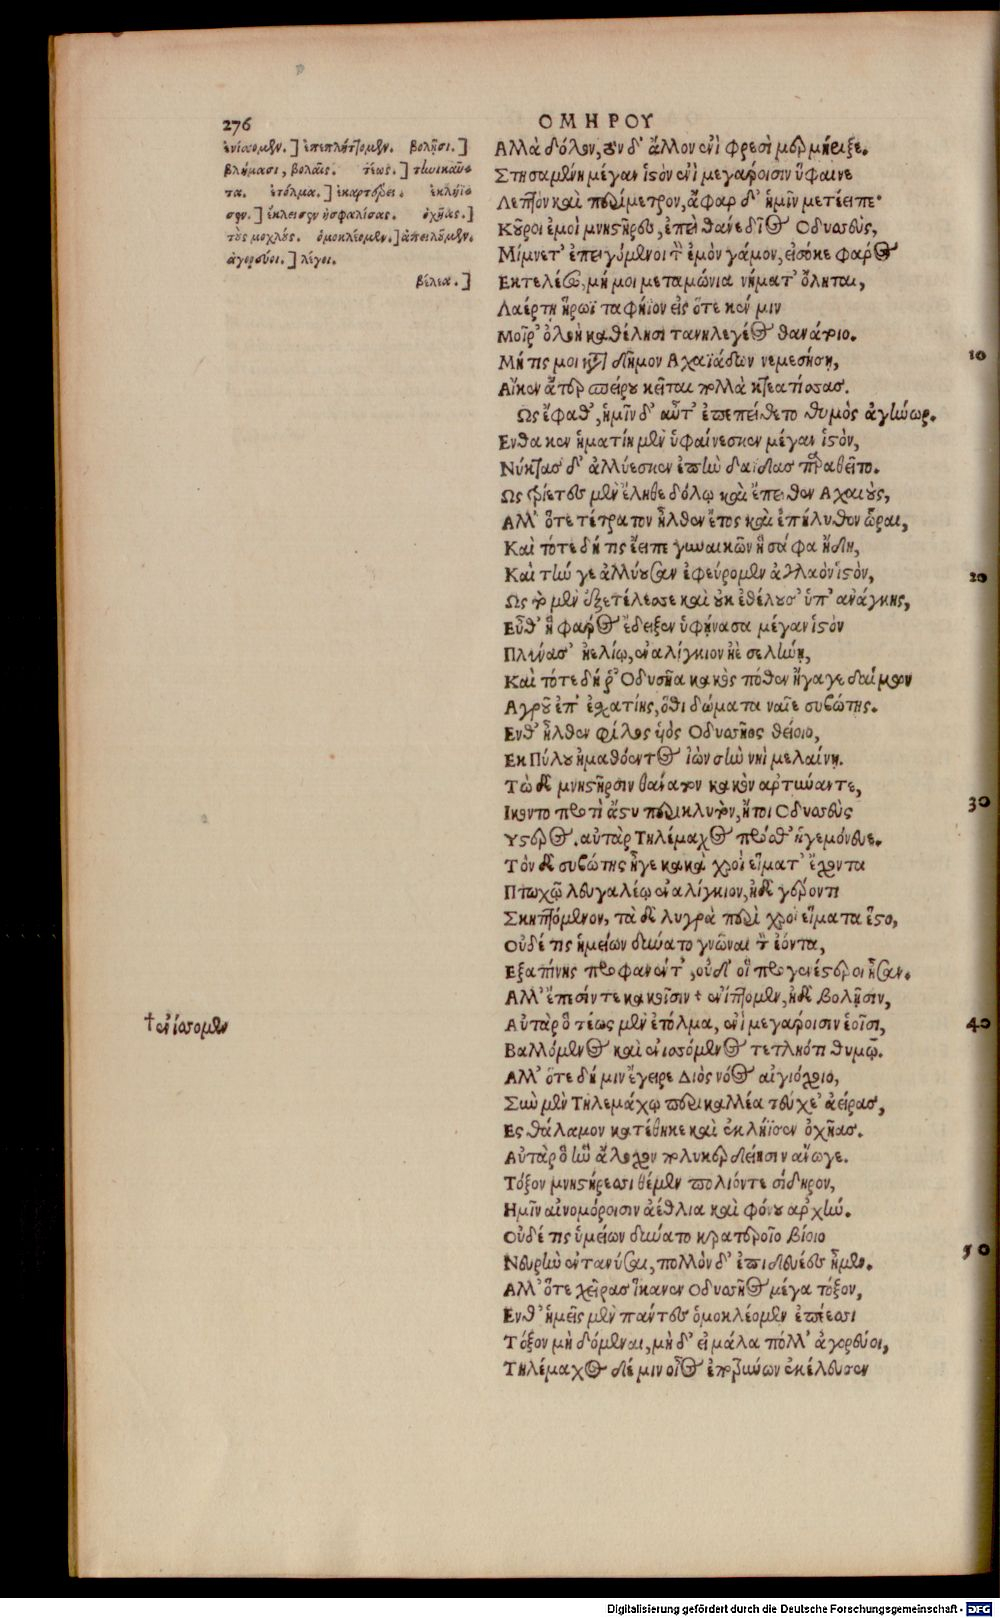 276
ΟΜΗΡΟΥ
ἐνίσσομεν.] ἐπεπλήττομεν. βολῇσι.]
βλήμασι, βολαῖς. τέως.] τηνικαῦ-
τα. ἐτόλμα.] ἐκαρτέρει. ἐκλήϊ-
σεν.] ἔκλεισεν ἠσφαλίσας. ὀχῆας.]
τοὺς μοχλούς. ὁμοκλέομεν.] ἀπειλοῦμεν.
ἀγορεύοι.] λέγοι.
βέλεα.]
Αλλὰ δόλον, τόνδ' ἄλλον ἐνὶ φρεσὶ μερμήριξε.
Στησαμένη μέγαν ἱστὸν ἐνὶ μεγάροισιν ὕφαινε
Λεπτὸν καὶ περίμετρον, ἄφαρ δ' ἡμῖν μετέειπε·
Κοῦροι ἐμοὶ μνηστῆρες, ἐπεὶ θάνε δῖος Οδυσσεὺς,
Μίμνετ' ἐπειγόμενοι τὸν ἐμὸν γάμον, εἰσόκε φάρος
Εκτελέσω, μή μοι μεταμώνια νήματ' ὄληται,
Λαέρτῃ ἥρωϊ ταφήϊον εἰς ὅτε κέν μιν
Μοῖρ' ὀλοὴ καθέλῃσι τανηλεγέος θανάτοιο.
Μή τις μοι κατὰ δῆμον Αχαϊάδων νεμεσήσῃ,
Αἴκεν ἄτερ σπείρου κεῖται πολλὰ κτεατίσσας.
Ως ἔφαθ', ἡμῖν δ' αὖτ' ἐπεπείθετο θυμὸς ἀγήνωρ.
Ενθα κεν ἠματίη μὲν ὑφαίνεσκεν μέγαν ἱστὸν,
Νύκτας δ' ἀλλύεσκεν ἐπὴν δαΐδας παραθεῖτο.
Ως τρίετες μὲν ἔληθε δόλῳ καὶ ἔπειθεν Αχαιοὺς,
Αλλ' ὅτε τέτρατον ἦλθεν ἔτος καὶ ἐπήλυθον ὧραι,
Καὶ τότε δή τις ἔειπε γυναικῶν ἣ σάφα ᾔδη,
Καὶ τήν γε ἀλλύουσαν ἐφεύρομεν ἀγλαὸν ἱστὸν,
Ως τὸ μὲν ἐξετέλεσσε καὶ οὐκ ἐθέλουσ' ὑπ' ἀνάγκης,
Εὖθ' ἣ φάρος ἔδειξεν ὑφήνασα μέγαν ἱστὸν
Πλύνασ' ἠελίῳ, ἐναλίγκιον ἠὲ σελήνῃ,
Καὶ τότε δή ῥ' Οδυσῆα κακὸς πόθεν ἤγαγε δαίμων
Αγροῦ ἐπ' ἐσχατίης, ὅθι δώματα ναῖε συβώτης.
Ενθ' ἦλθεν φίλος υἱὸς Οδυσσῆος θείοιο,
Εκ Πύλου ἠμαθόεντος ἰὼν σὺν νηὶ μελαίνῃ.
Τὼ δὲ μνηστῆρσιν θάνατον κακὸν ἀρτύναντε,
Ικοντο προτὶ ἄστυ περικλυτὸν, ἤτοι Οδυσσεὺς
Υστερος, αὐτὰρ Τηλέμαχος πρόσθ' ἡγεμόνευε.
Τὸν δὲ συβώτης ἦγε κακὰ χροῒ εἵματ' ἔχοντα
Πτωχῷ λευγαλέῳ ἐναλίγκιον, ἠδὲ γέροντι
Σκηπτόμενον, τὰ δὲ λυγρὰ περὶ χροῒ εἵματα ἕστο,
Οὐδέ τις ἡμείων δύνατο γνῶναι τὸν ἐόντα,
Εξαπίνης προφανέντ', οὐδ' οἳ προγενέστεροι ἦσαν.
Αλλ' ἔπεσίν τε κακοῖσιν † ἐνίπτομεν, ἠδὲ βολῇσιν,
† ἐνίσσομεν
Αὐτὰρ ὃ τέως μὲν ἐτόλμα, ἐνὶ μεγάροισιν ἑοῖσι,
Βαλλόμενος καὶ ἐνισσόμενος τετληότι θυμῷ.
Αλλ' ὅτε δή μιν ἔγειρε Διὸς νόος αἰγιόχοιο,
Σὺν μὲν Τηλεμάχῳ περικαλλέα τεύχε' ἀείρας,
Ες θάλαμον κατέθηκε καὶ ἐκλήϊσεν ὀχῆας.
Αὐτὰρ ὃ ἣν ἄλοχον πολυκερδείῃσιν ἄνωγε.
Τόξον μνηστήρεσσι θέμεν πολιόν τε σίδηρον,
Ημῖν αἰνομόροισιν ἀέθλια καὶ φόνου ἀρχήν.
Οὐδέ τις ὑμείων δύνατο κρατεροῖο βίοιο
Νευρὴν ἐντανύσαι, πολλὸν δ' ἐπιδευέες ἦμεν.
Αλλ' ὅτε χεῖρας ἵκανεν Οδυσσῆος μέγα τόξον,
Ενθ' ἡμεῖς μὲν πάντες ὁμοκλέομεν ἐπέεσσι
Τόξον μὴ δόμεναι, μὴ δ' εἰ μάλα πόλλ' ἀγορεύοι,
Τηλέμαχος δέ μιν οἶος ἐποτρύνων ἐκέλευσεν
10
20
30
40
50
Digitalisierung gefördert durch die Deutsche Forschungsgemeinschaft - DFG